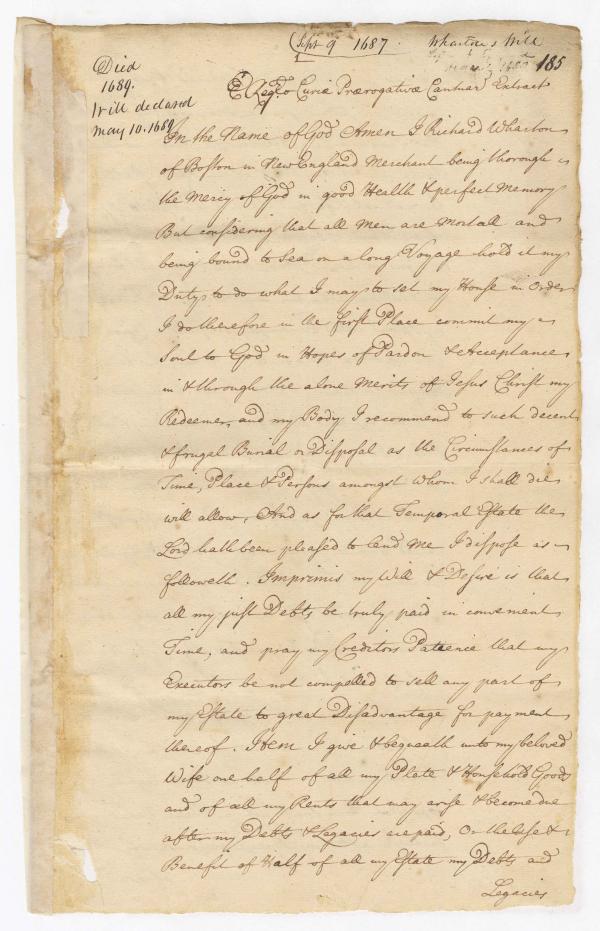 Sept 9 1687. Wharton's Will
185
Died
1689.
Will declared
May 10. 1689
Ex Regro Curiæ Prærogativæ Cantuar Extract
In the Name of God Amen I Richard Wharton
of Boston in New England Merchant being thorough
the Mercy of God in good Health & perfect Memory
But considering that all Men are Mortall and
being bound to Sea on a long Voyage hold it my
Duty to do what I may to set my House in Order
I do therefore in the first Place commit my
Soul to God in Hopes of Pardon & Acceptance
in & through the alone Merits of Jesus Christ my
Redeemer, and my Body I recommend to such decent
& frugal Burial or Disposal as the Circumstances of
Time, Place & Persons amongst whom I shall die
will allow, And as for that Temporal Estate the
Lord hath been pleased to lend me I dispose as
followeth. Imprimis my Will & Desire is that
all my just Debts be truly paid in convenient
Time, and pray my Creditors Patience that my
Executors be not compelled to sell any part of
my Estate to great Disadvantage for payment
thereof. Item I give & bequeath unto my beloved
Wife one half of all my Plate & Household Goods
and of all my Rents that may arise & become due
after my Debts & Legacies are paid, Or the Use &
Benefit of Half of all my Estate my Debts and
Legacies